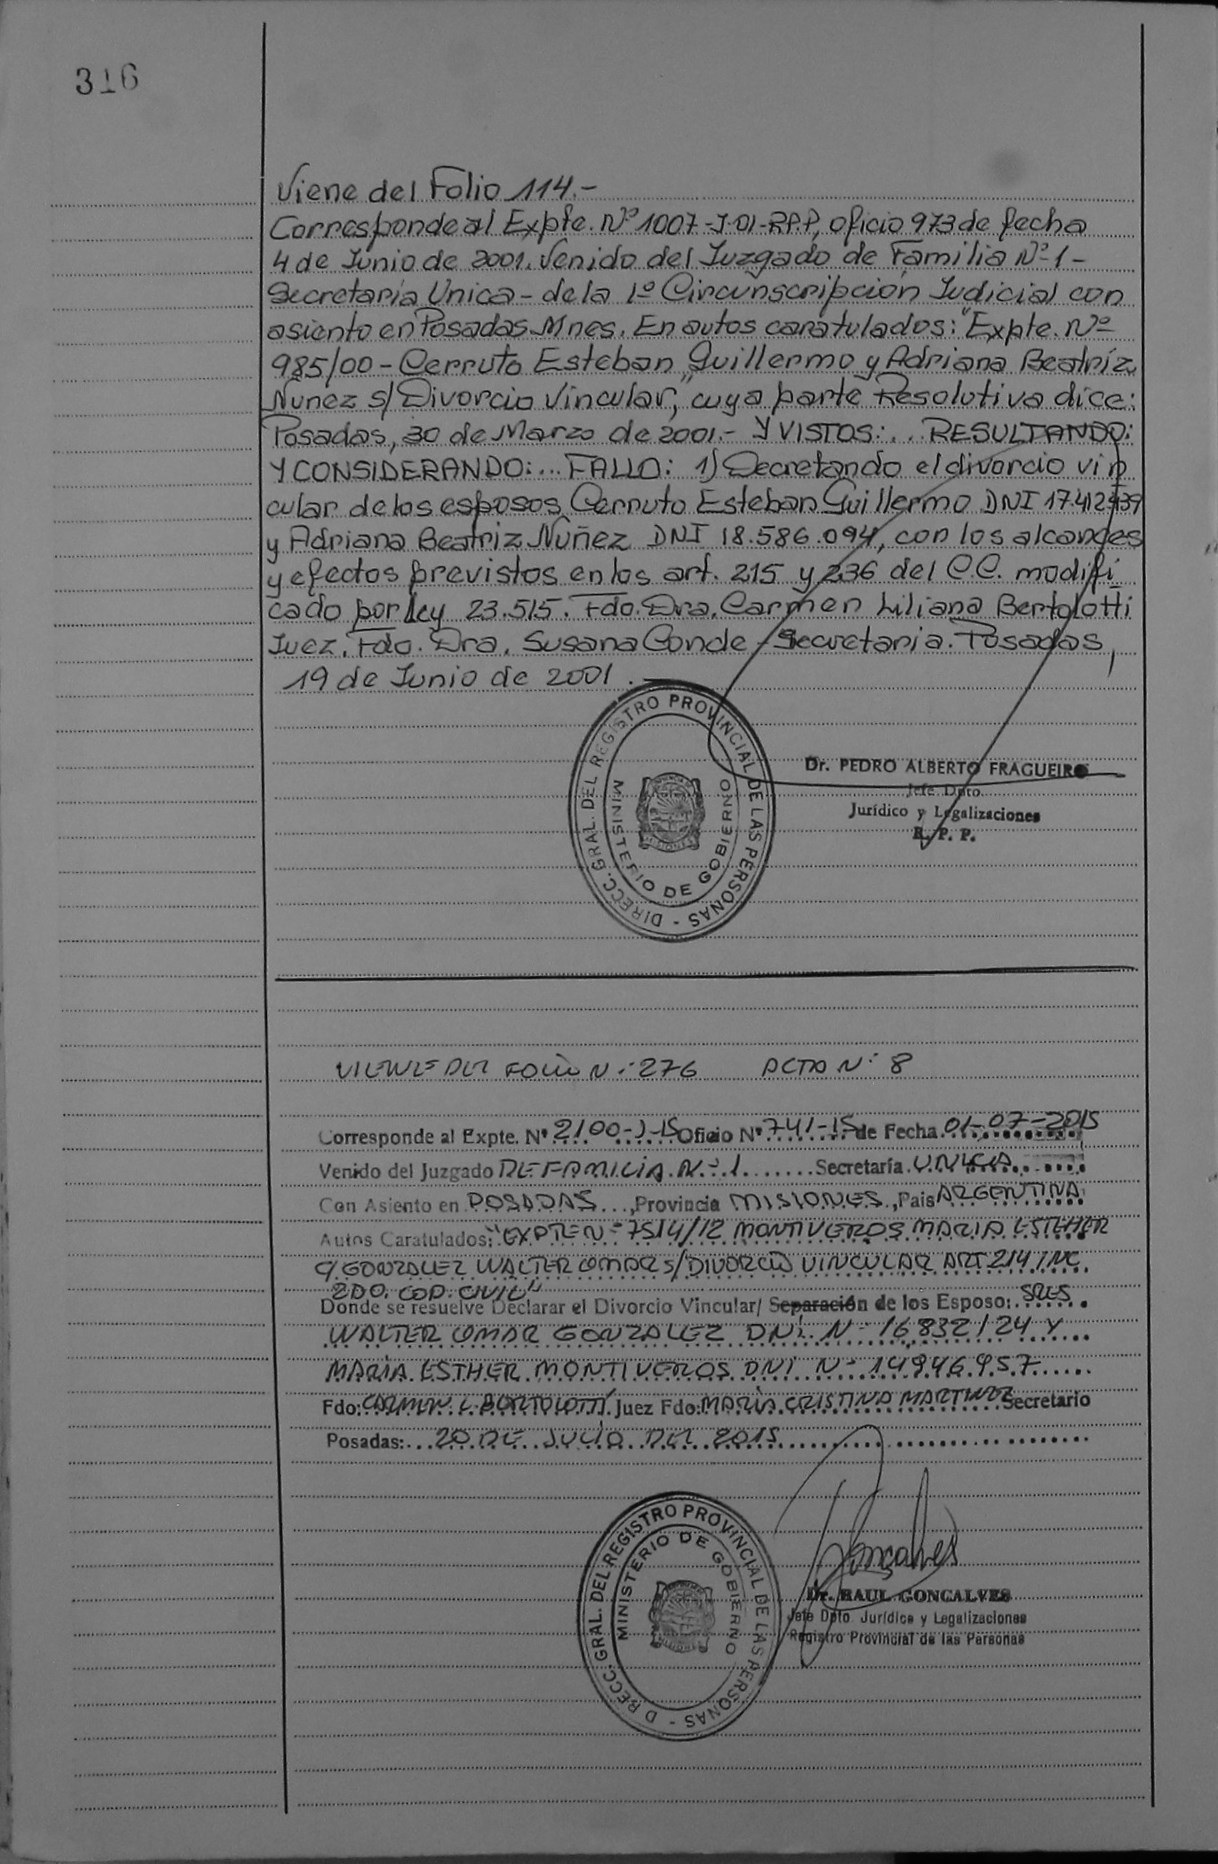 316
Viene del Folio 114.-
Corresponde al Expte. Nº 1007-J-01-R.P.P, oficio 973 de fecha
4 de Junio de 2001. Venido del Juzgado de Familia Nº 1-
Secretaria Unica - de la 1º Circunscripción Judicial con
asiento en Posadas. Mnes. En autos caratulados: "Expte. Nº
985/00 - Cerruto Esteban Guillermo y Adriana Beatríz
Nuñez s/ Divorcio Vincular", cuya parte Resolutiva dice:
Posadas, 30 de Marzo de 2001.- Y VISTOS:... RESULTANDO:
Y CONSIDERANDO:... FALLO: 1) Decretando el divorcio vin
cular de los esposos Cerruto Esteban Guillermo DNI 17.412.939
y Adriana Beatriz Nuñez DNI 18.586.094, con los alcances
y efectos previstos en los art. 215 y 236 del C.C. modifi
cado por ley 23.515. Fdo. Dra. Carmen Liliana Bertolotti
Juez. Fdo. Dra. Susana Conde - Secretaria. Posadas,
19 de Junio de 2001.
DIRECC. GRAL. DEL REGISTRO PROVINCIAL DE LAS PERSONAS -
MINISTERIO DE GOBIERNO
Dr. PEDRO ALBERTO FRAGUEIRO
Jefe Dpto.
Jurídico y Legalizaciones
R. P. P.
VIENE DEL FOLIO N: 276 ACTA N: 8
Corresponde al Expte. Nº 2100-J-15 Oficio Nº 741-15 de Fecha 01-07-2015
Venido del Juzgado DE FAMILIA N: 1 Secretaría UNICA
Con Asiento en POSADAS, Provincia MISIONES, Pais ARGENTINA
Autos Caratulados: "EXPTE N: 7514/12 MONTIVEROS MARIA ESTHER
C/ GONZALEZ WALTER OMAR S/ DIVORCIO VINCULAR ART 214 INC.
2DO. COD. CIVIL"
Donde se resuelve Declarar el Divorcio Vincular/ Separación de los Esposo: SRES
WALTER OMAR GONZALEZ DNI. N: 16.832124 Y
MARIA ESTHER MONTIVEROS DNI N: 14.946.957
Fdo: CARMEN L. BERTOLOTTI Juez Fdo: MARIA CRISTINA MARTINEZ Secretario
Posadas: 20 DE JULIO DEL 2015
DIRECC. GRAL. DEL REGISTRO PROVINCIAL DE LAS PERSONAS -
MINISTERIO DE GOBIERNO
Goncalves
Dr. RAUL GONCALVES
Jefe Dpto. Jurídico y Legalizaciones
Registro Provincial de las Personas